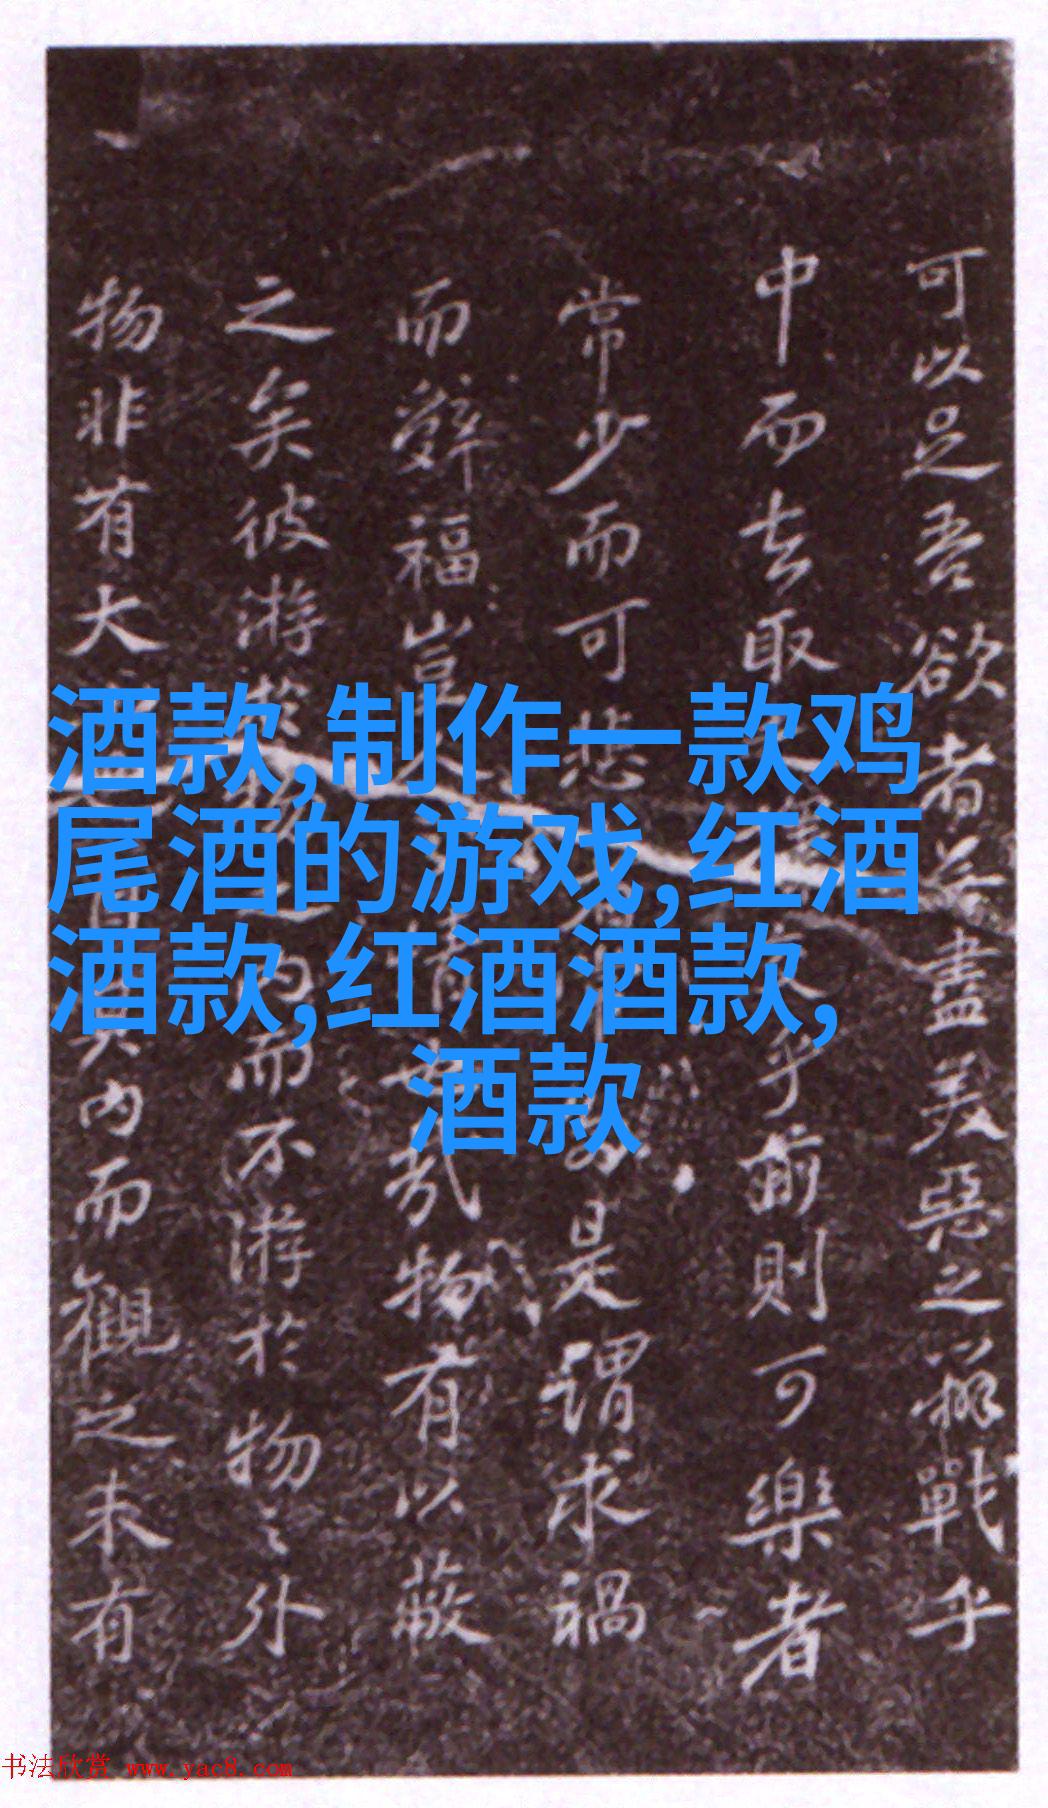 可以足吾欲者無盡美惡之辨戰乎
中而去取乎前則可樂者
常少而可悲是謂求禍
而辭福豈哉物有以蔽
之矣彼游於物之内而不游於物之外
物非有大其内而觀之未有
酒款,制作一款鸡
尾酒的游戏,红酒
酒款,红酒酒款,
酒款
书法欣赏 www.yac8.com